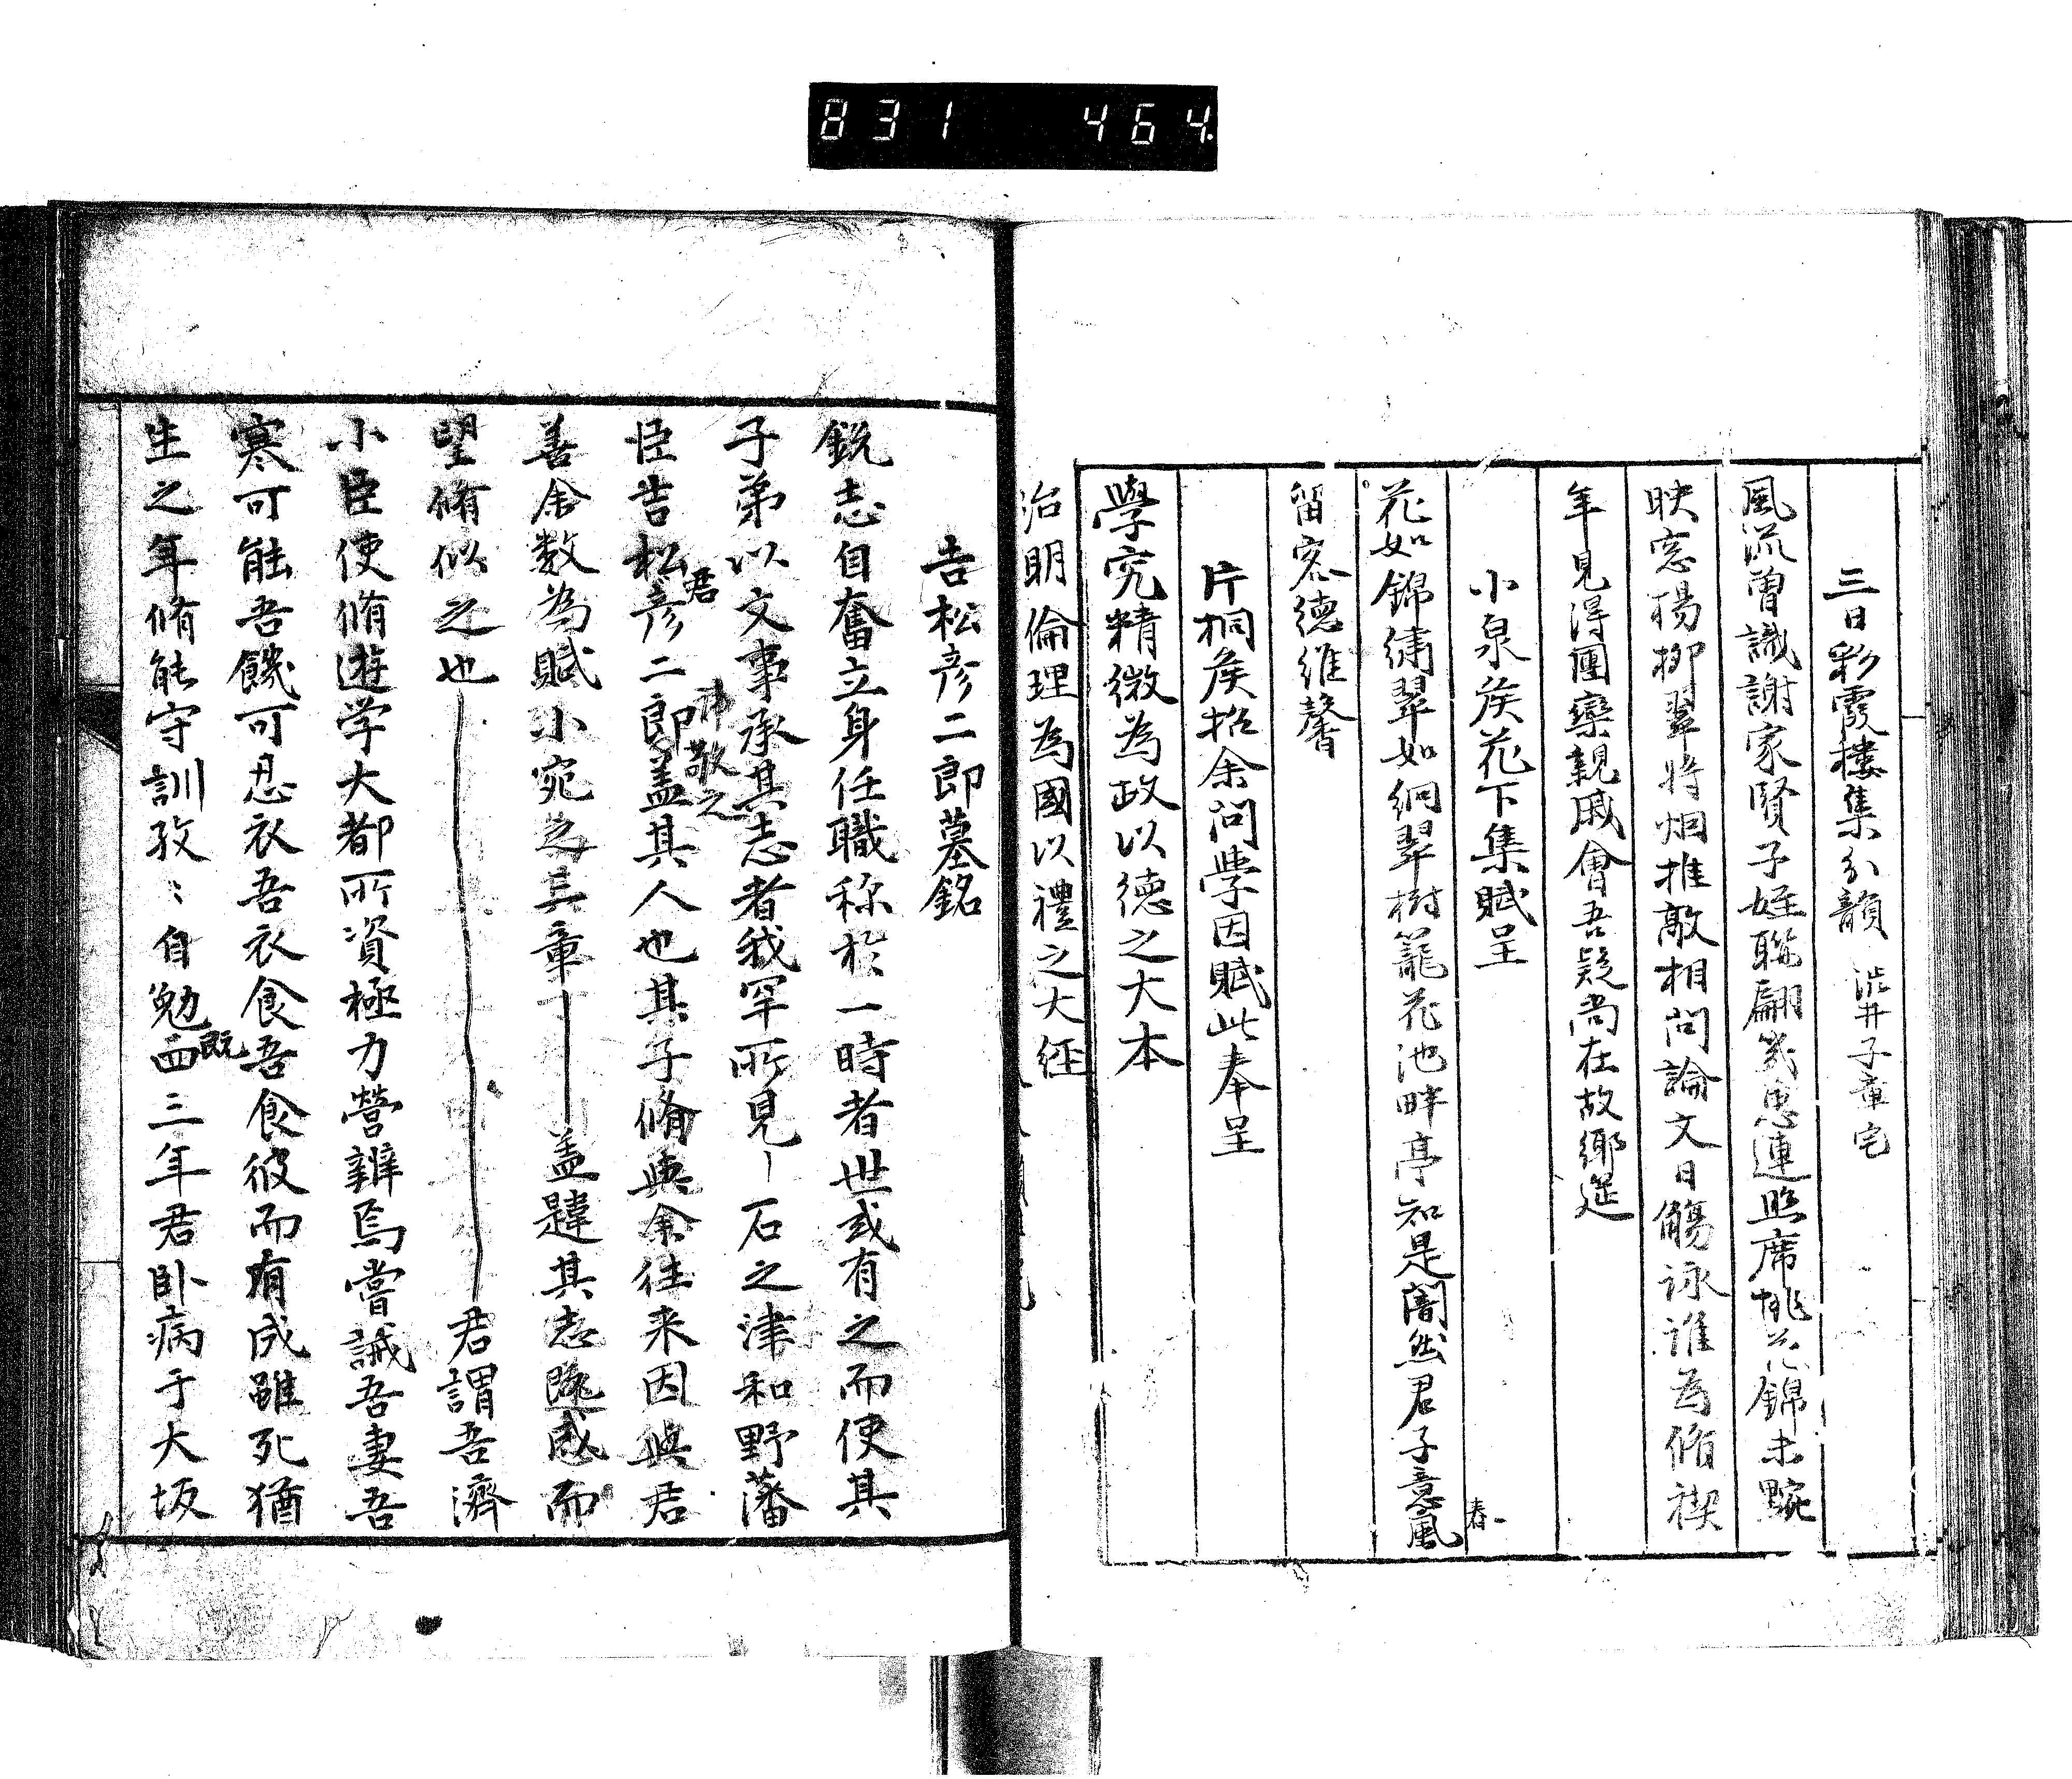 831 464
三日彩霞樓集分韻 澁井子章宅
風流曽識謝家賢子姪聯翩幾惠連照席桃花錦未
映窓楊柳翠將烟推敲相問論文日觴詠誰為脩禊
年見得團欒親戚會吾疑尚在故鄉筵
小泉矦花下集賦呈
花如錦繡翠如絅翠樹籠花池畔亭知是闇然君子意風
春
留客德維馨
片桐矦招余問學因賦此奉呈
學究精微為政以德之大本
治明倫理為國以禮之大經
吉松彦二郎墓銘
銳志自奮立身任職称於一時者世或有之而使其
子弟以文事承其志者我罕所見石之津和野藩
臣吉松彦二郎盖其人也其子脩與余往来因與君
君
善余数為賦小宛之三章盖韙其志隆感而
望脩似之也君謂吾濟
小臣使脩遊学大都所資極力營辦焉嘗誡吾妻吾
寒可能吾饑可忍衣吾衣食吾食彼而有成雖死猶
生之年脩能守訓孜〻自勉四三年君卧病于大坂
既